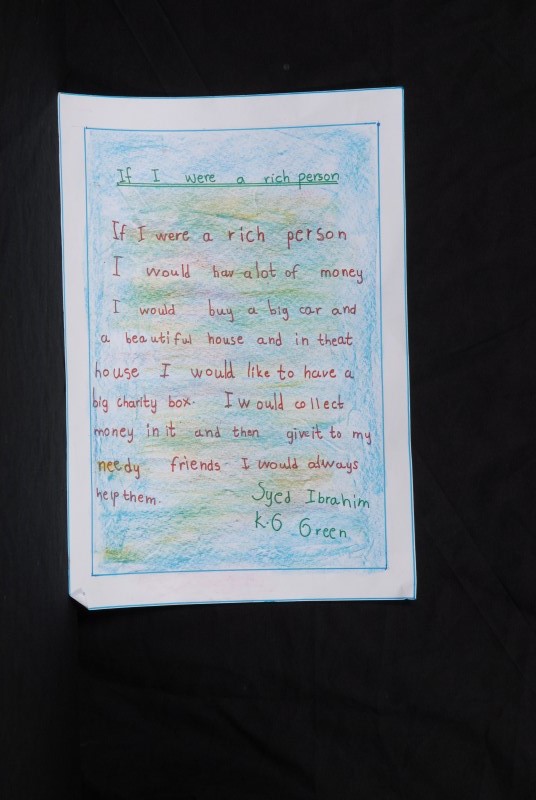 If I were a rich person
If I were a rich person
I would hav alot of money
I would buy a big car and
a beautiful house and in theat
house I would like to have a
big charity box. I would collect
money in it and then give it to my
needy friends. I would always
help them.
Syed Ibrahim
K.G Green